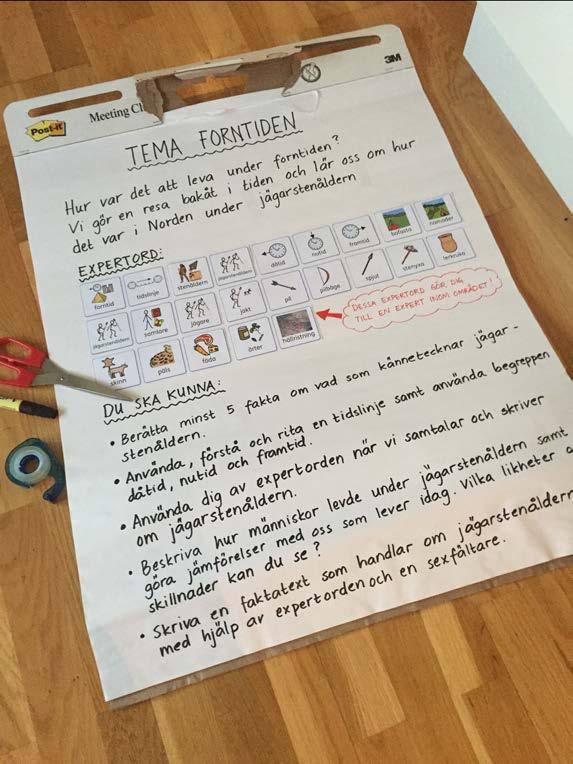 Post-it
Meeting Ch
3M
TEMA FORNTIDEN
Hur var det att leva under forntiden?
Vi gör en resa bakåt i tiden och lär oss om hur
det var i Norden under jägarstenåldern
EXPERTORD:
forntid tidslinje stenåldern jägarstenåldern dåtid nutid framtid bofasta nomader
jägarstenåldern samlare jägare jakt pil pilbåge spjut stenyxa lerkruka
skinn päls föda örter hällristning
DESSA EXPERTORD GÖR DIG
TILL EN EXPERT INOM OMRÅDET!
DU SKA KUNNA:
• Berätta minst 5 fakta om vad som kännetecknar jägar-
stenåldern.
• Använda, förstå och rita en tidslinje samt använda begreppen
dåtid, nutid och framtid.
• Använda dig av expertorden när vi samtalar och skriver
om jägarstenåldern.
• Beskriva hur människor levde under jägarstenåldern samt
göra jämförelser med oss som lever idag. Vilka likheter o
skillnader kan du se?
• Skriva en faktatext som handlar om jägarstenåldern
med hjälp av expertorden och en sexfältare.